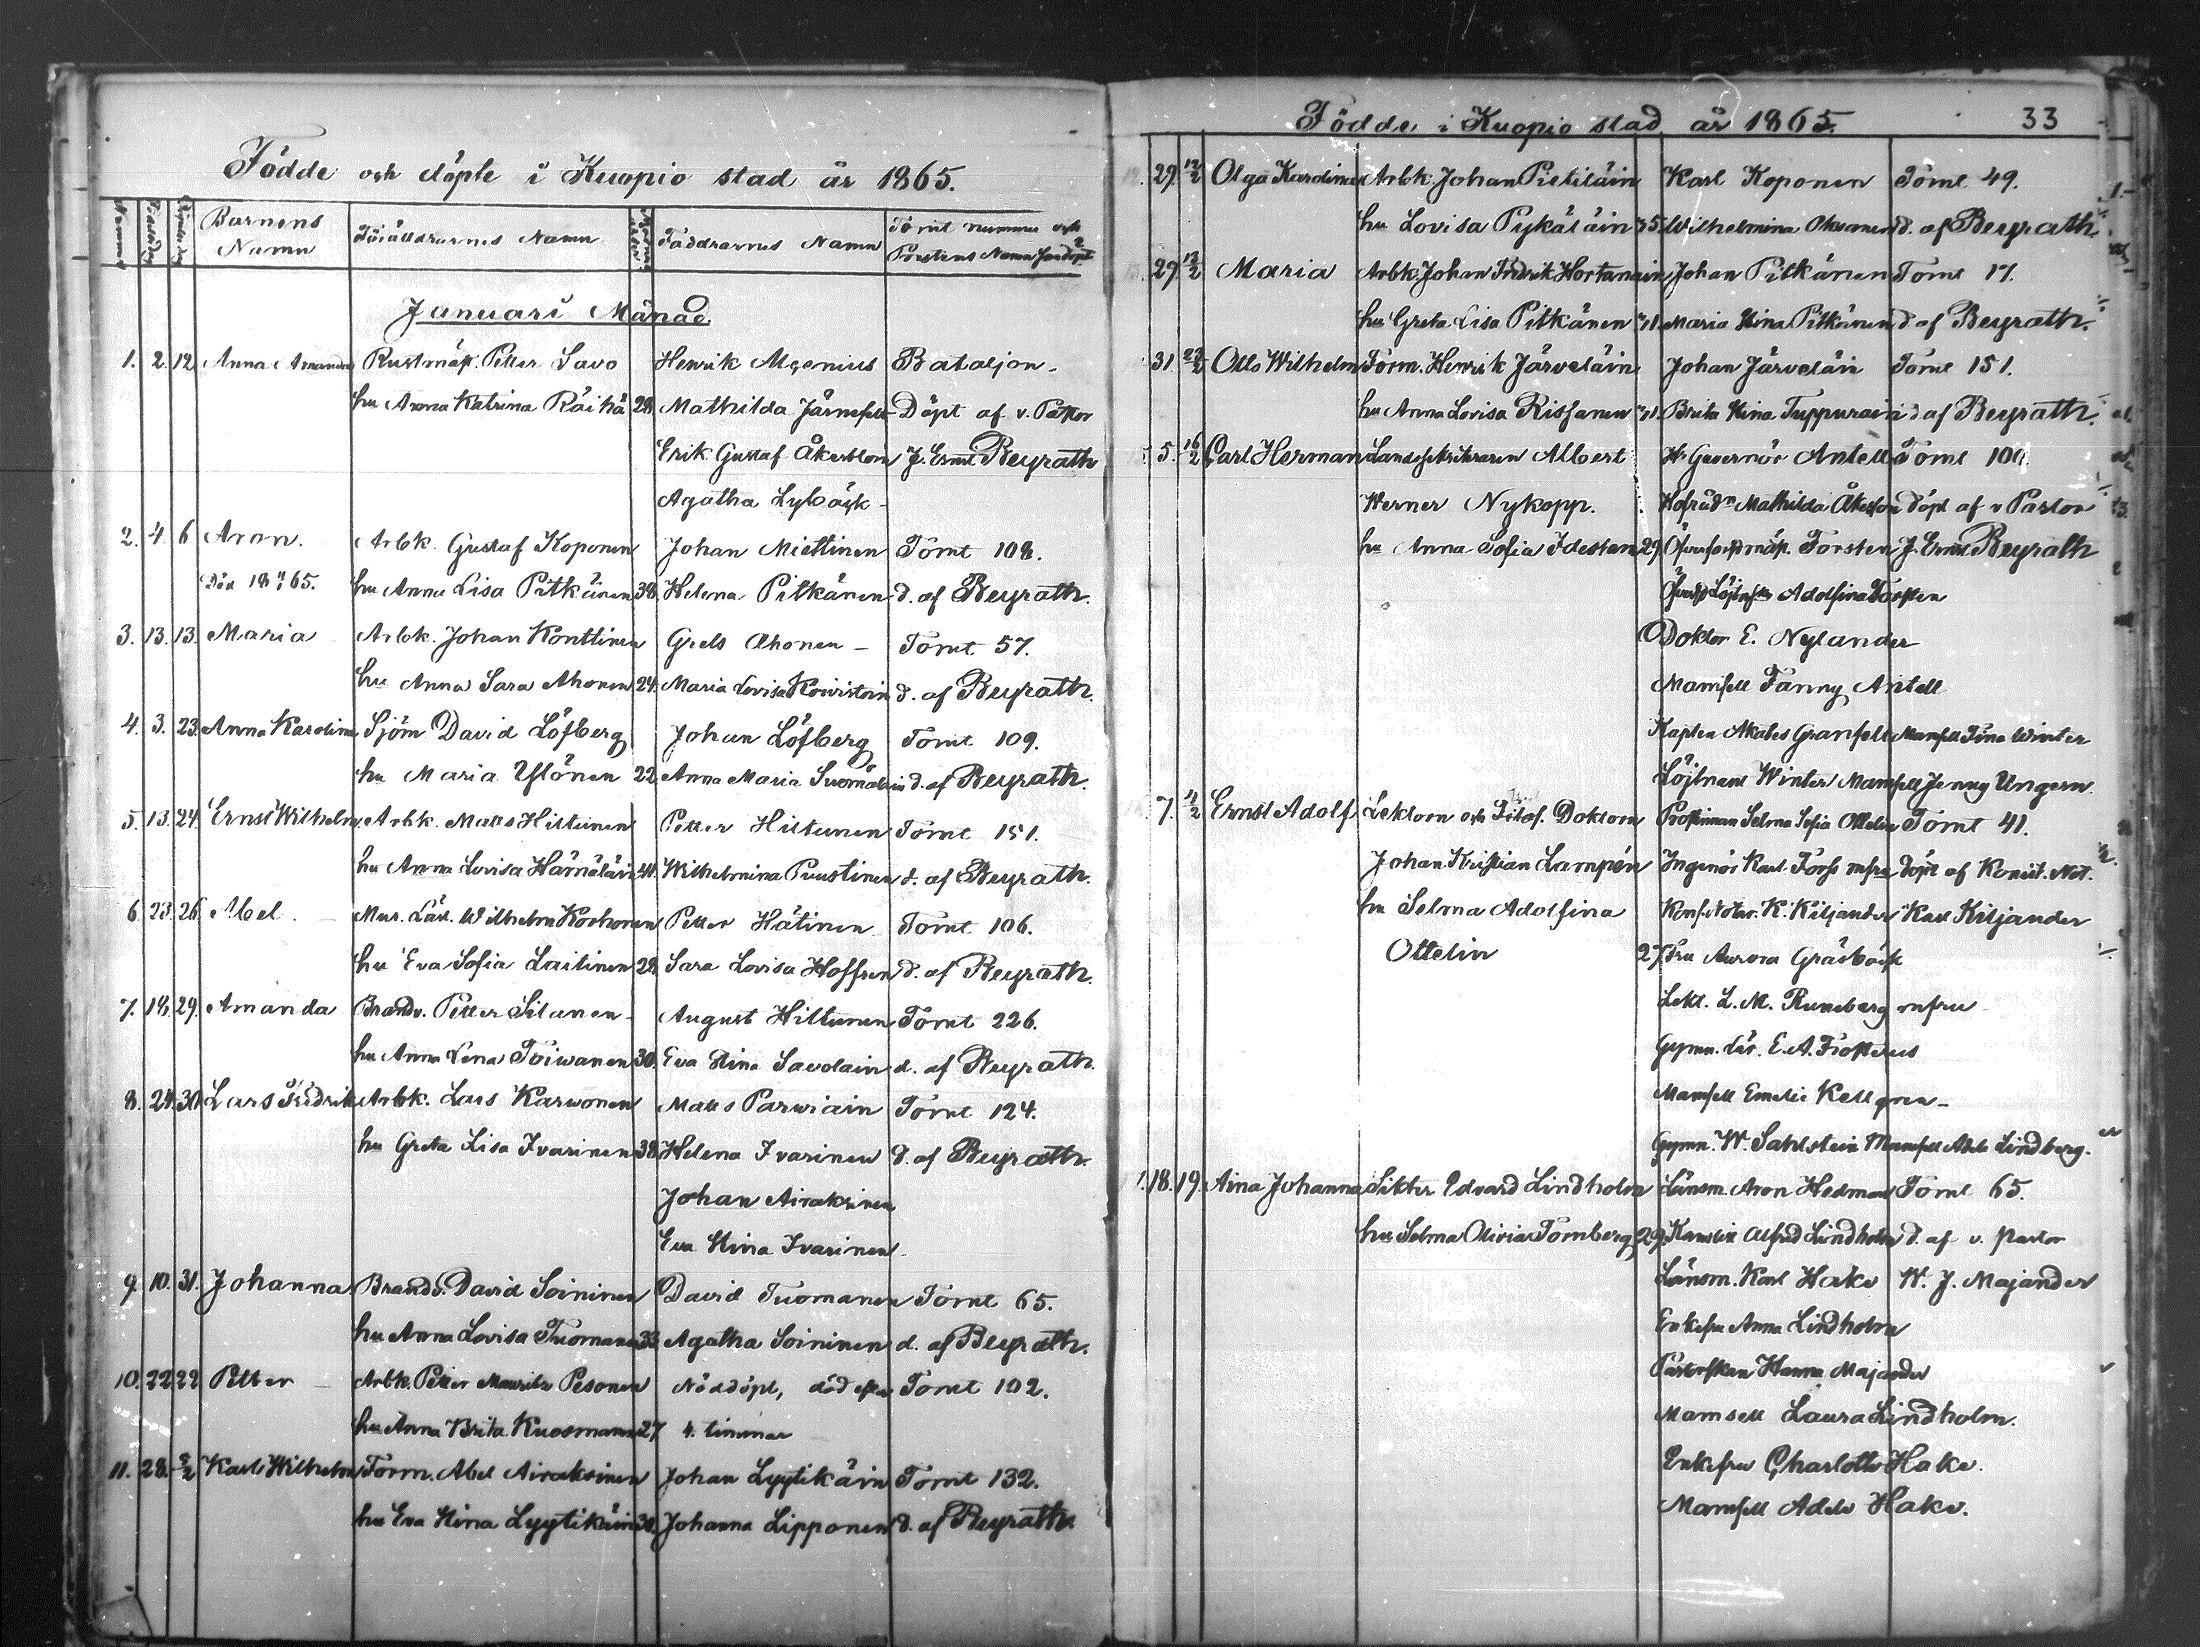 Födde och döpte i Kuopio stad år 1865.
Barnens Namn Föräldrarnes Namn Faddrarnes Namn Tomt nummer och Prestens Namn som döpt
Januari Månad.
1. 2. 12. Anna Amanda Rustmäst. Petter Savo Henrik Algenius Bataljon.
hu Anna Katrina Räihä 28. Mathilda Järnefelt Döpt af v. Pastor
Erik Gustaf Åkerblom J. Ernst Beyrath
Agatha Lybäck
2. 4. 6 Aron. Arbk. Gustaf Koponen Johan Miettinen Tomt 108.
Död 65. hu Anna Lisa Pitkänen 38. Helena Pitkänen d. af Beyrath.
3. 13. 13. Maria Arbk. Johan Konttinen Grels Ahonen Tomt 57.
hu Anna Sara Ahonen 24. Maria Lovisa Koivistoin d. af Beyrath.
4. 3. 23. Anna Karolina Sjöm David Löfberg Johan Löfberg Tomt 109.
hu Maria Ylönen 22. Anna Maria Suomäläin d. af Beyrath.
5. 13. 24. Ernst Wilhelm Arbk. Matts Hiltunen Petter Hiltunen Tomt 151.
hu Anna Lovisa Hämäläin 41. Wilhelmina Puustinen d. af Beyrath.
6. 23. 26. Abel. Mur. Lärl. Wilhelm Korhonen Petter Hätinen Tomt 106.
hu Eva Sofia Laitinen 29. Sara Lovisa Hoffren d. af Beyrath.
7. 18. 29. Amanda Brandv. Petter Silanen August Hiltunen Tomt 226.
hu Anna Lena Toiwanen 30. Eva Stina Savolain d. af Beyrath.
8. 24. 30. Lars Fredrik Arbk. Lars Karwonen Matts Parwiain Tomt 124.
hu Greta Lisa Ivarinen 38. Helena Ivarinen d. af Beyrath.
Johan Airaksinen
Eva Stina Ivarinen.
9. 10. 31. Johanna Brandv. David Soininen David Tuomanen Tomt 65.
hu Anna Lovisa Tuomanen 33. Agatha Soininen d. af Beyrath.
10. 22. 22. Petter Arbk. Petter Mauritz Pesonen Nöddöpt, död efter Tomt 102.
hu Anna Brita Kuosmanen 27 4. timmar
11. 28. Karl Wilhelm Torm. Abel Airaksinen Johan Lyytikäin Tomt 132.
hu Eva Stina Lyytikäin 30. Johanna Lipponen d. af Beyrath.
Födde i Kuopio stad år 1865. 33
29. 12/2 Olga Karolina Arbk Johan Pietiläin Karl Koponen Tomt 49.
hu Lovisa Pykäläin 35. Wilhelmina Oksanen d. af Beyrath
29. 12/2 Maria Arbk. Johan Fredrik Hortanain Johan Pitkänen Tomt 17.
hu Greta Lisa Pitkänen Maria Stina Pitkänen d af Beyrath.
31 Otto Wilhelm Torm. Henrik Järveläin Johan Järveläin Tomt 151.
hu Anna Lovisa Rissanen Brita Stina Tuppurain d af Beyrath.
5. 16/2 Carl Herman Landssekriteraren Albert Hr Guvernör Antell Tomt 100.
Werner Nykopp. Hofråd Mathilda Döpt af v Pastor
hu Anna Sofia Idestam 29. Torsten J. Ernst Beyrath
Adolfina
Doktor E. Nylander
Mamsell Fanny Antell
Kapten Akates Granfelt Mamsell Fina Winter
Löjtnant Winter Mamsell Jenny Ungern
7. 11/2 Ernst Adolf Lektorn och Filof. Doktorn Prostinnan Selma Sofia Ottelin Tomt 41.
Johan Kristian Lampén Ingenör Karl Forss mfru Döpt af Konsist. Not.
hu Selma Adolfina Kons. Notar. K. Kiljander Karl Kiljander
Ottelin 27. Fru Aurora Gräsbäck
Lekt. L. M. Runeberg mfru
Gymn. lär. E. A. Frosterus
Mamsell Emelie Kellgren
Gymn. W. Sahlstein Mamsell Adele Lindberg.
18. 19. Aina Johanna Sikter Edvard Lindholm Länsm. Aron Hedman Tomt 65.
hu Selma Olivia Tornberg 29. Kanslist Alfred Lindholm d. af v. Pastor
Länsm. Karl Hake W. J. Majander
Enkefru Anna Lindholm
Pastorskan Hanna Majander
Mamsell Laura Lindholm.
Enkefru Charlotta Hake.
Mamsell Adele Hake.